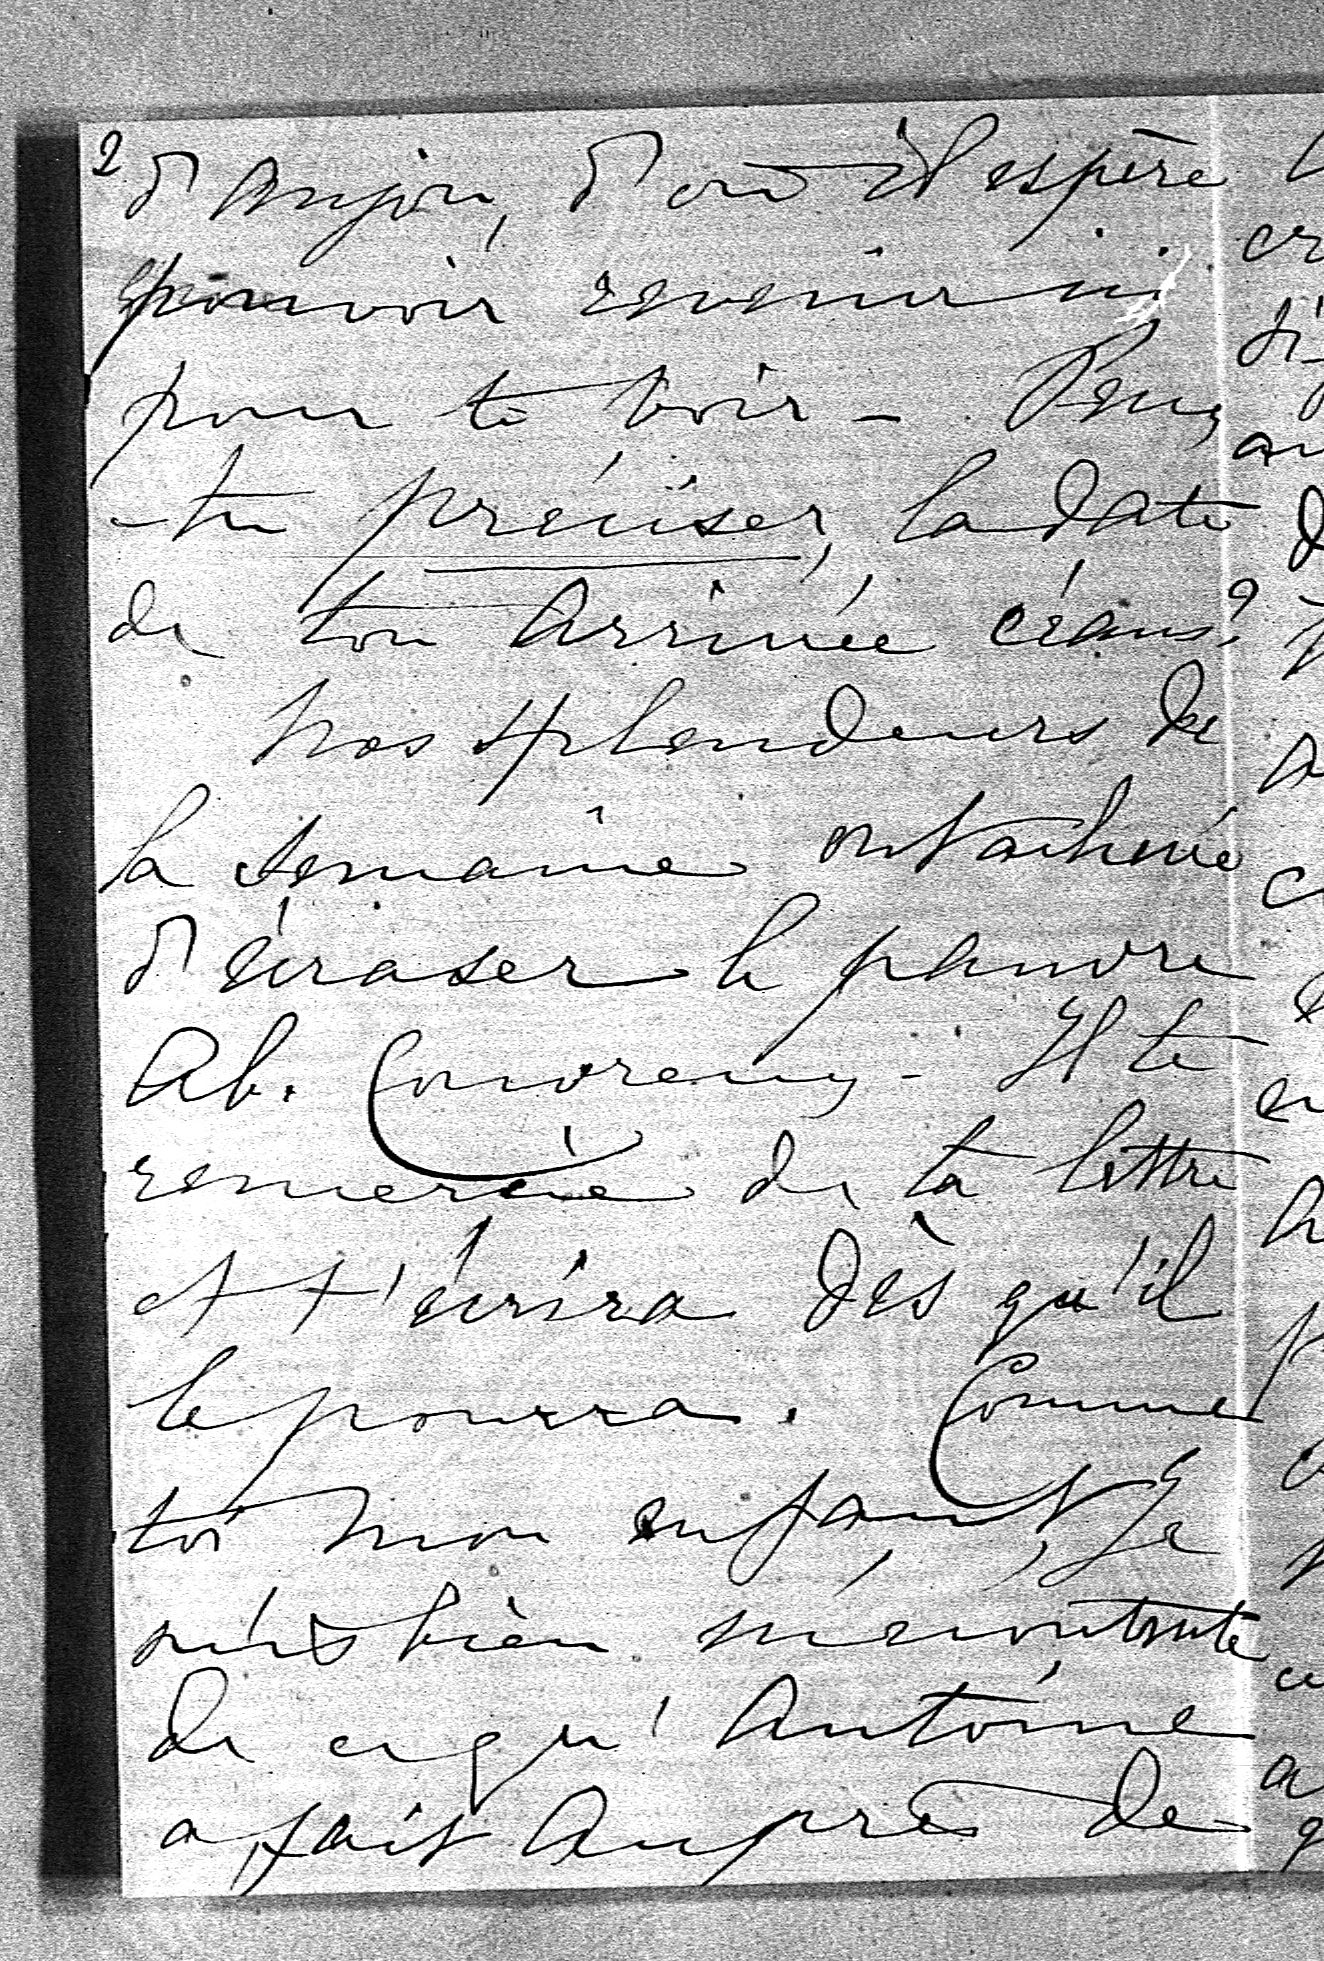 2
d'Anjou, d'où il espère
pouvoir revenir ici
pour te voir – Peux
-tu préciser, la date
de ton arrivée céans?
Nos splendeurs de
la semaine ont achevé
d'écraser le pauvre
Ab. Couvreux – Il te
remercie de ta lettre
et t'écrira dès qu'il
le pourra. Comme
toi mon enfant, je
suis bien mécontente
de ce qu'Antoine
a fait auprès de